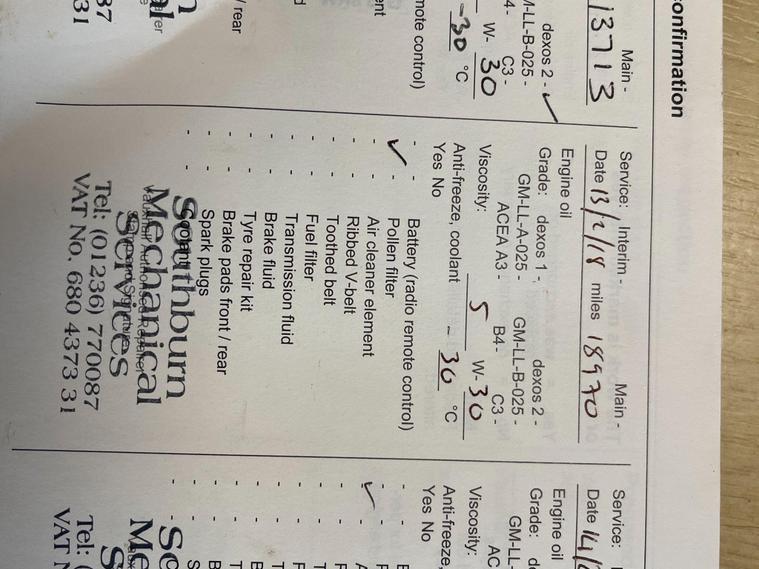 onfirmation
Main -
13713
dexos 2 - ✓
M-LL-B-025 -
C3 -
W- 30
-30 °C
mote control)
ent
/ rear
37
31
Service: Interim - Main -
Date 13/2/18 miles 18970
Engine oil
Grade: dexos 1 - dexos 2 -
GM-LL-A-025 - GM-LL-B-025 -
ACEA A3 - B4 - C3 -
Viscosity: 5 W- 30
Anti-freeze, coolant - 30 °C
Yes No
- - Battery (radio remote control)
✓ - Pollen filter
- - Air cleaner element
- - Ribbed V-belt
- - Toothed belt
- - Fuel filter
- - Transmission fluid
- - Brake fluid
- - Tyre repair kit
- - Brake pads front / rear
- - Spark plugs
Southburn
Mechanical
Vauxhall Authorised Repairer
Services
Tel: (01236) 770087
VAT No. 680 4373 31
Service: I
Date 14/2
Engine oil
Grade: de
GM-LL-
AC
Viscosity:
Anti-freeze,
Yes No